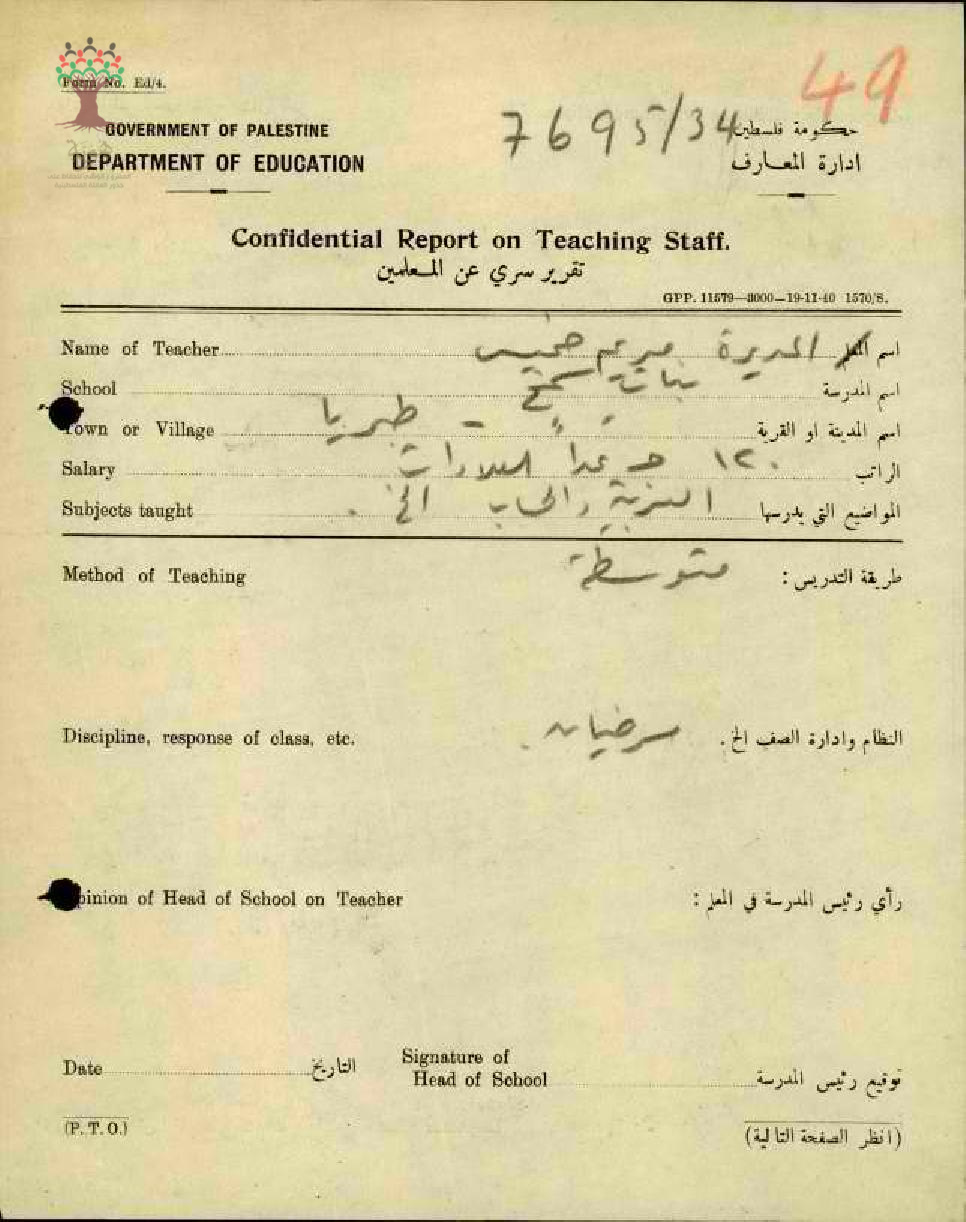 Form No. Ed/4.
49
7695/34
GOVERNMENT OF PALESTINE
حكومة فلسطين
DEPARTMENT OF EDUCATION
ادارة المعارف
Confidential Report on Teaching Staff.
تقرير سري عن المعلمين
GPP. 11579—3000—19-11-40 1570/S.
Name of Teacher المديرة مريم خميس اسم
School بنات سمخ اسم المدرسة
Town or Village طبريا اسم المدينة او القرية
Salary ١٢٠ ج عدا العلاوات الراتب
Subjects taught العربية والحساب الخ . المواضيع التي يدرسها
Method of Teaching متوسطة طريقة التدريس :
Discipline, response of class, etc. مرضيان . النظام وادارة الصف الخ .
pinion of Head of School on Teacher رأي رئيس المدرسة في المعلم :
Date التاريخ Signature of
Head of School توقيع رئيس المدرسة
(P. T. O.) (انظر الصفحة التالية)